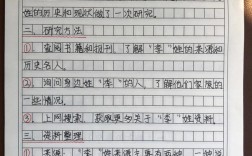 姓的历史和现状做了一次研究。
二、研究方法
①、查阅书籍和报刊，了解“李”姓的来源和
历史名人。
②、询问身边姓“李”的人，了解他们家族的
一些情况。
③、上网搜索，获取更多关于“李”姓资料。
三、资料整理